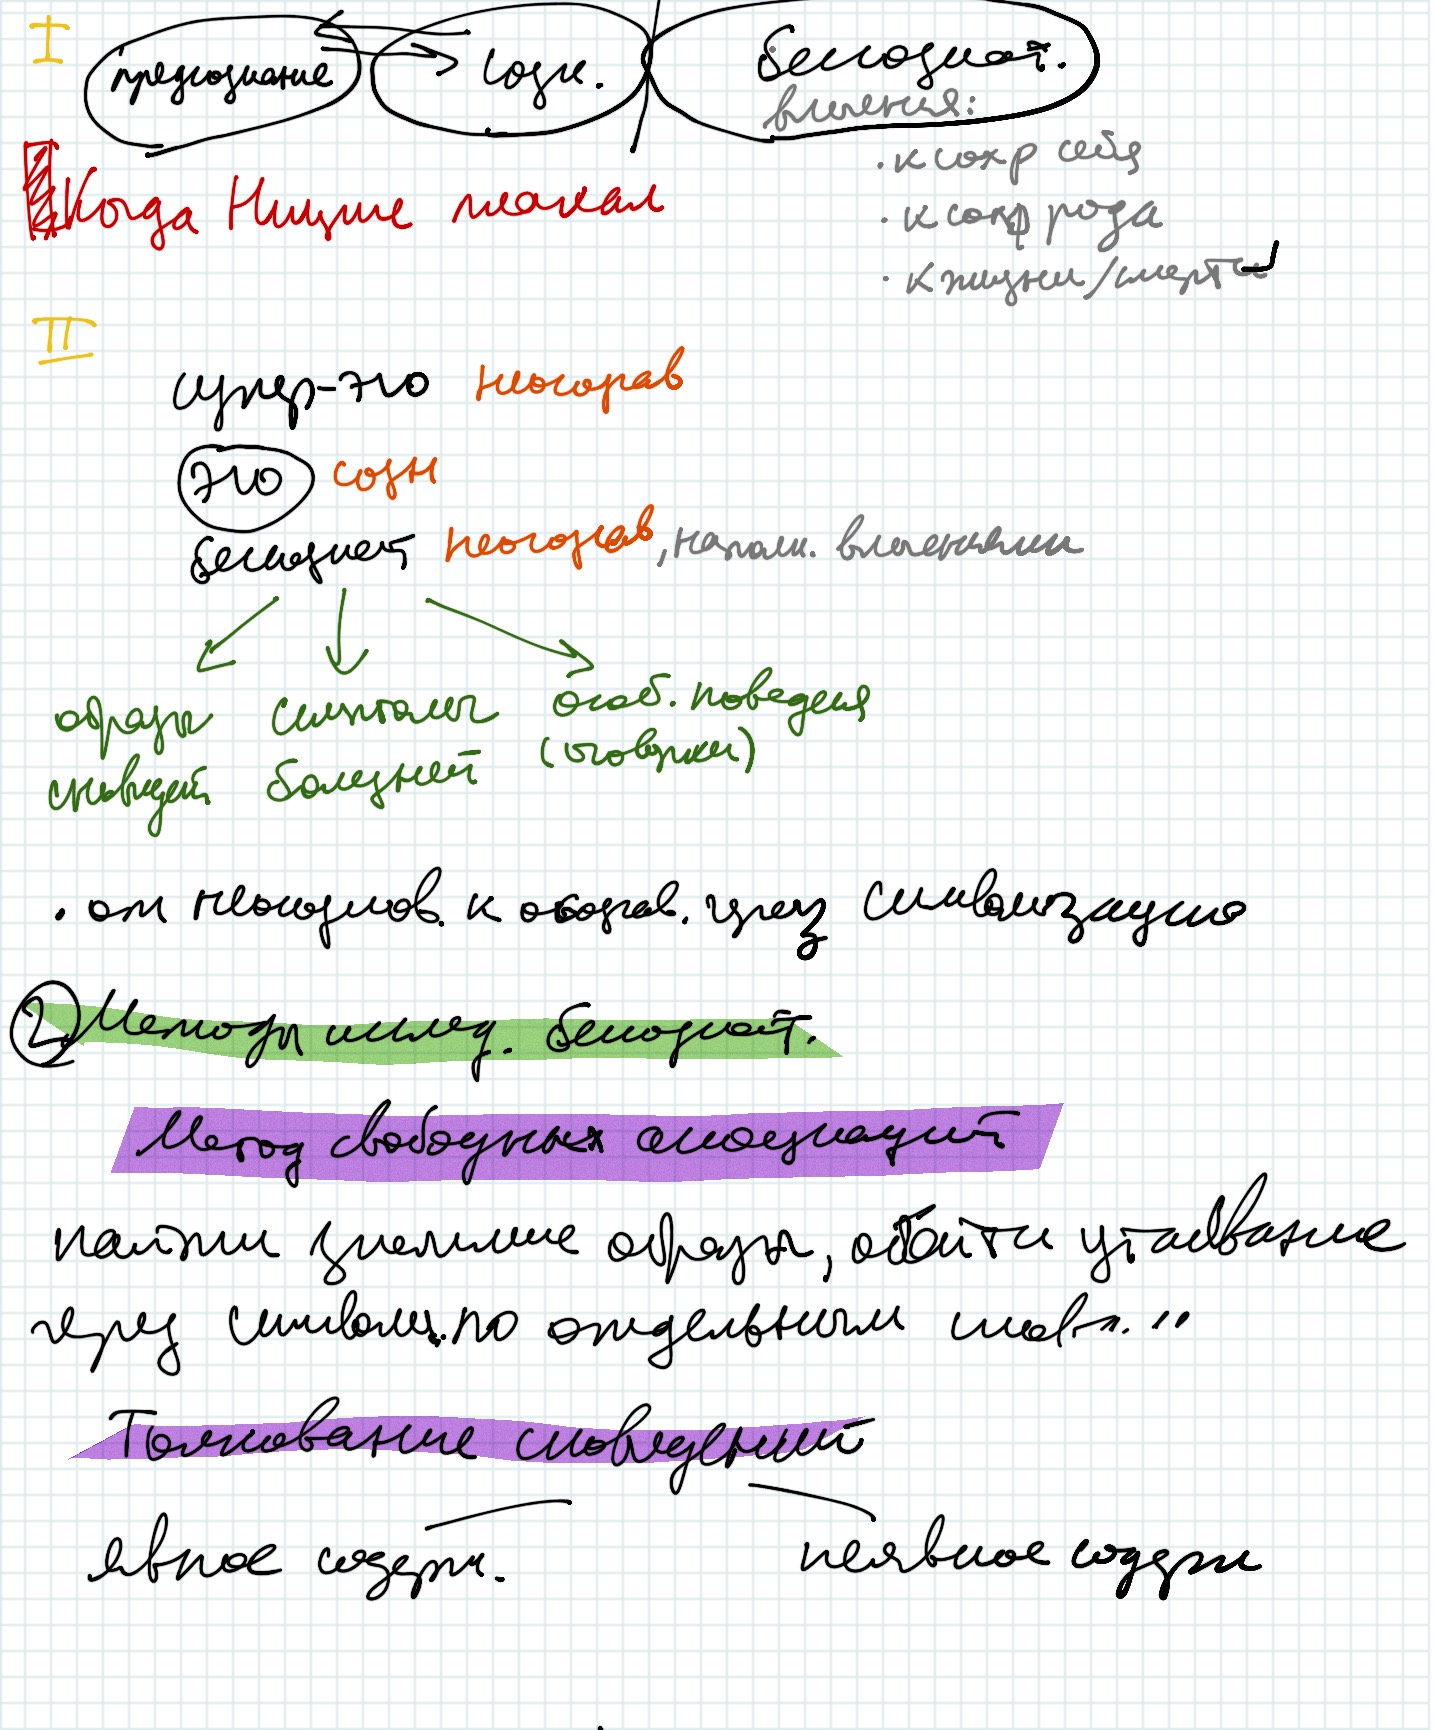 I
предсознание созн. бессознат.
влечения:
· к сохр себя
· к сохр рода
· к жизни/смерти
Когда Ницше плакал
II
супер-эго неосознав
эго созн
бессознат неосознав, наполн. влечениями
образы симптомы особ. поведения
сновидей болезней (оговорки)
· от неосознав. к осознав. через символизацию
2. Методы исслед. бессознат.
Метод свободных ассоциаций
найти значимые образы, обойти утаивание
через символы. по отдельным
Толкование сновидений
явное содерж. неявное содерж